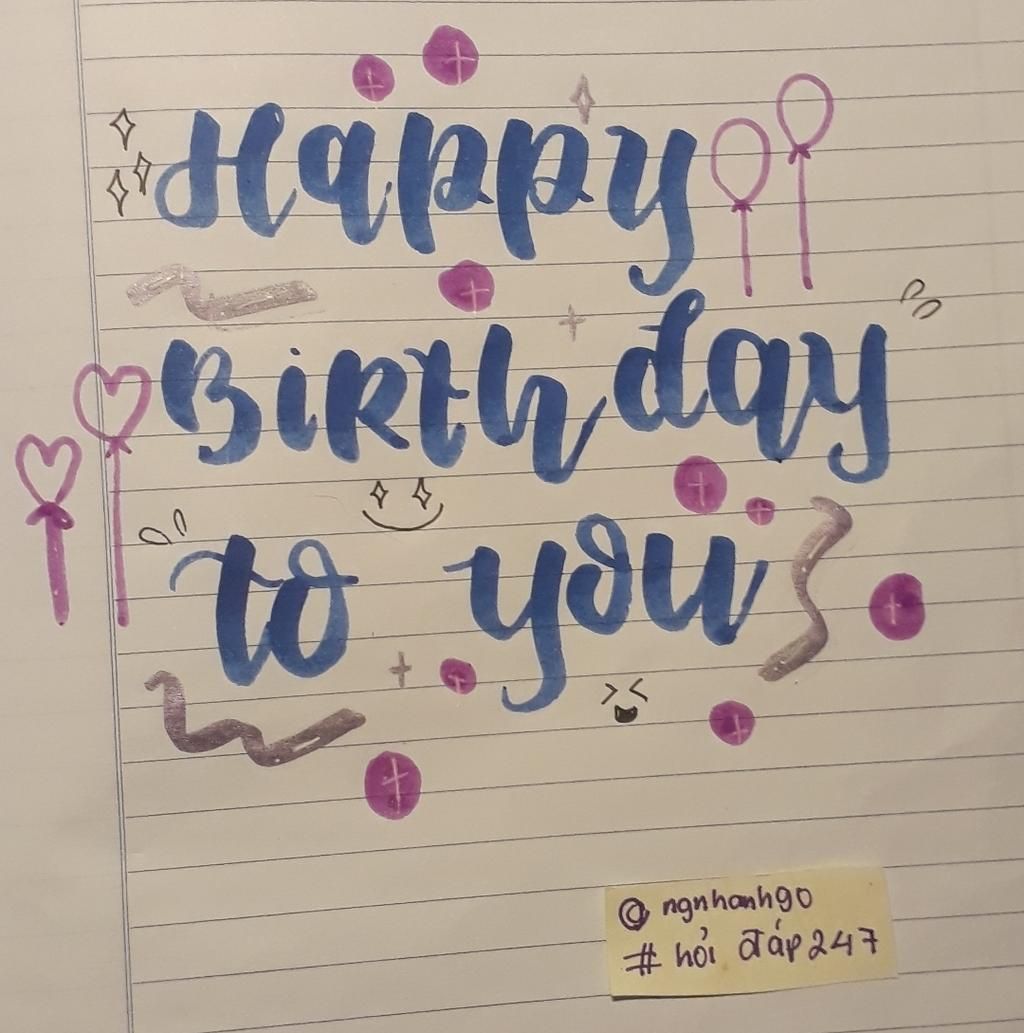 Happy
Birthday
to you
@ngnhanh90
# hỏi đáp247